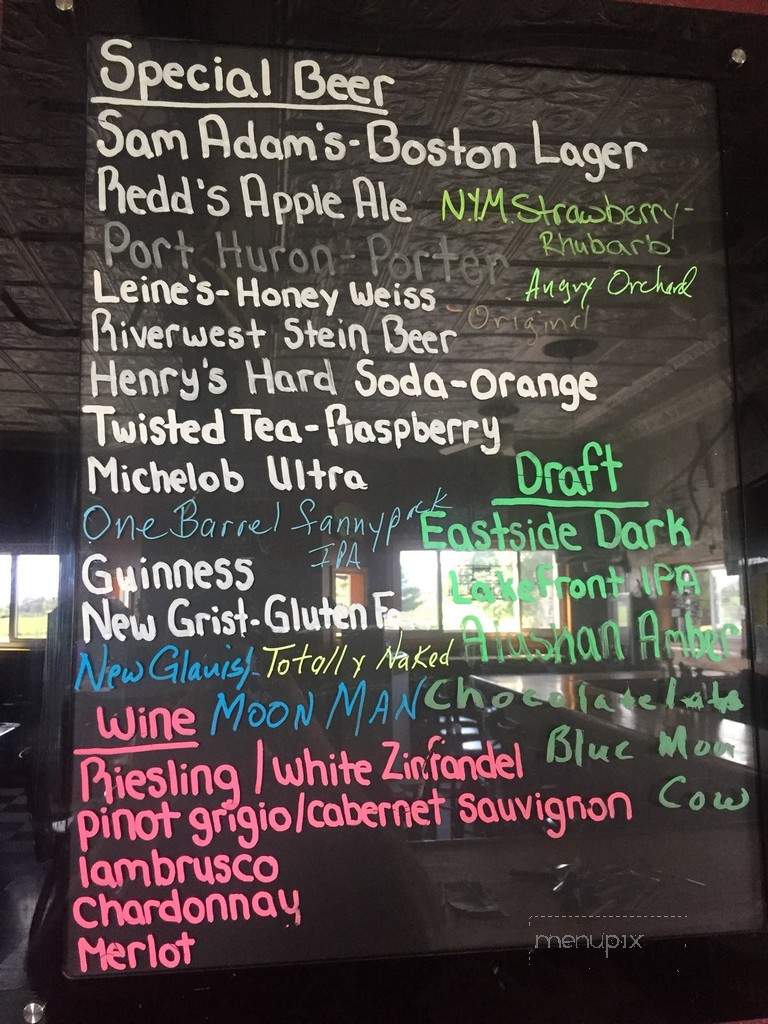 Special Beer
Sam Adam's-Boston Lager
Redd's Apple Ale
N.Y.M. Strawberry-
Rhubarb
Port Huron-Porter
Angry Orchard
Leine's-Honey Weiss
-Original
Riverwest Stein Beer
Henry's Hard Soda-Orange
Twisted Tea-Raspberry
Michelob Ultra
One Barrel fannypack
IPA
Guinness
New Grist-Gluten
New Glarus-Totally Naked
MOON MAN
Draft
Eastside Dark
Lakefront IPA
Alaskan Amber
Chocolate
Blue Moon
Cow
Wine
Riesling/White Zinfandel
pinot grigio/cabernet sauvignon
lambrusco
Chardonnay
Merlot
menupix